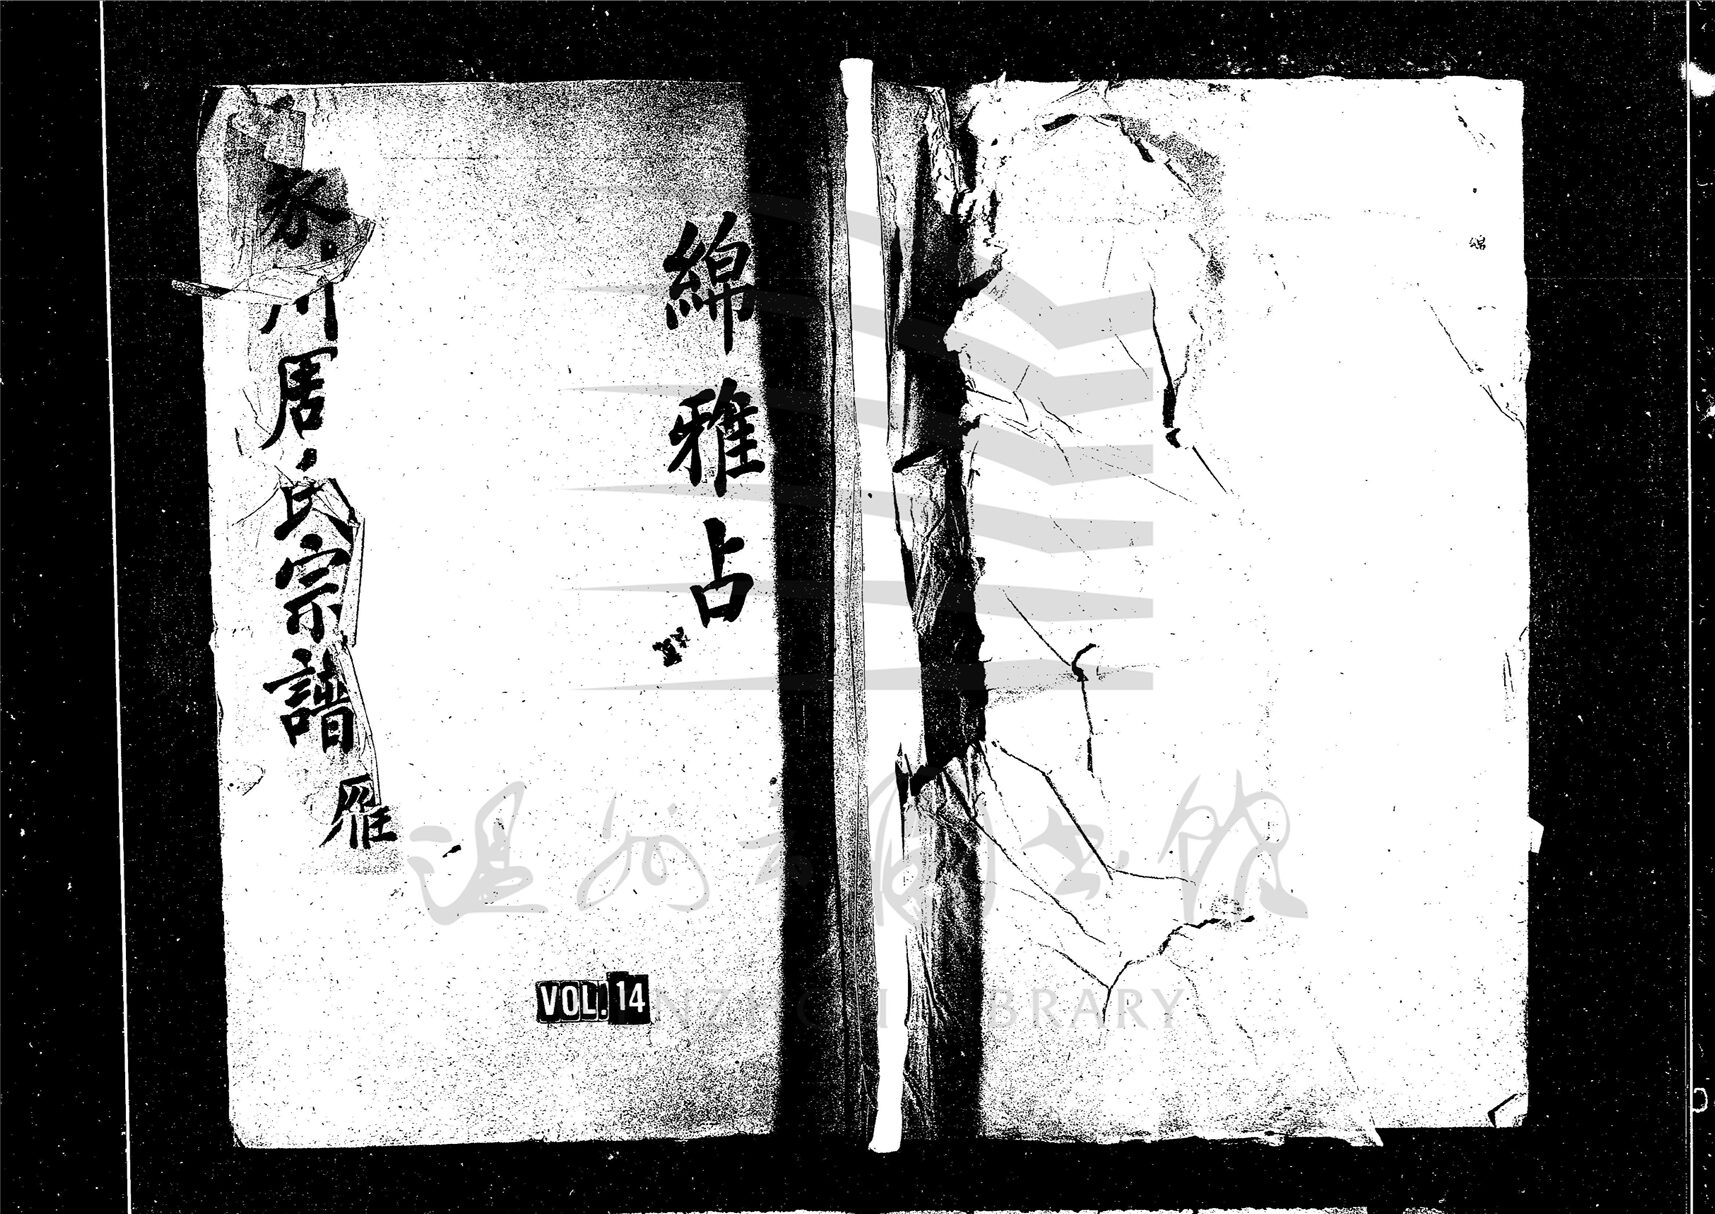 綿雅占
川周氏宗譜
雁
VOL. 14
綿
温州市图书馆
WENZHOU LIBRARY